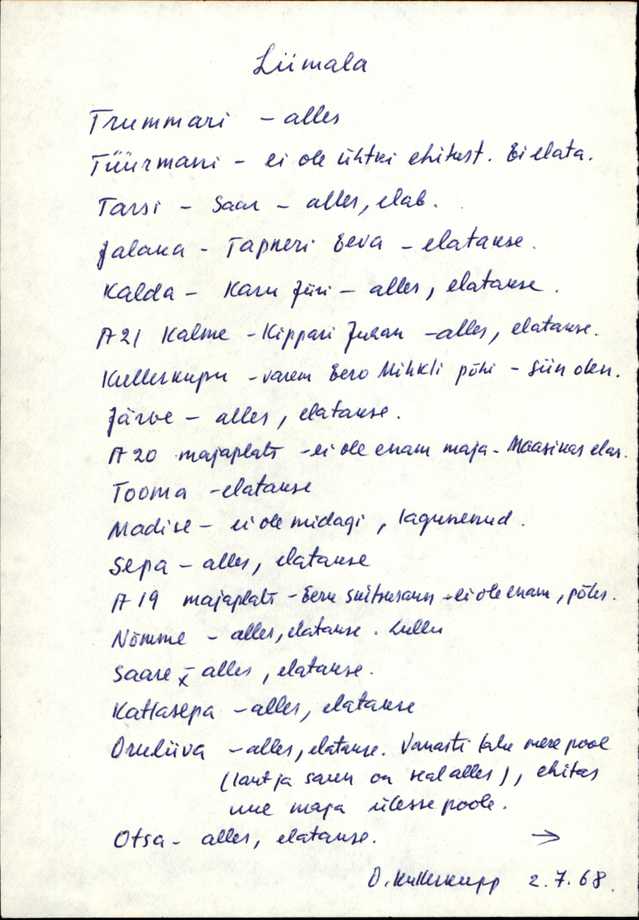 Liimala
Trummari - alles
Tüürmani - ei ole ühtki ehitust. Ei elata.
Tarsi - Saar - alles, elab.
Jalaka - Tapneri Eeva - elatakse.
Kalda - Karu Jüri - alles, elatakse.
A 21 Kalme - Kippari Juhan - alles, elatakse.
Kullerkupu - varem Eero Mihkli põhi - Siin olen.
Järve - alles, elatakse.
A 20 majaplats - ei ole enam maja - Maasikas elas.
Tooma - elatakse
Madise - ei ole midagi, lagunenud.
Sepa - alles, elatakse
A 19 majaplats - Eeru - ei ole enam, põles.
Nõmme - alles, elatakse. Lullu
Saare - x alles, elatakse.
Katlasepa - alles, elatakse
Oruliiva - alles, elatakse. Vanasti talu mere pool
(laut ja saun on seal alles), ehitas
uue maja ülessepoole.
Otsa - alles, elatakse. →
O. Kullerkupp 2.7.68.